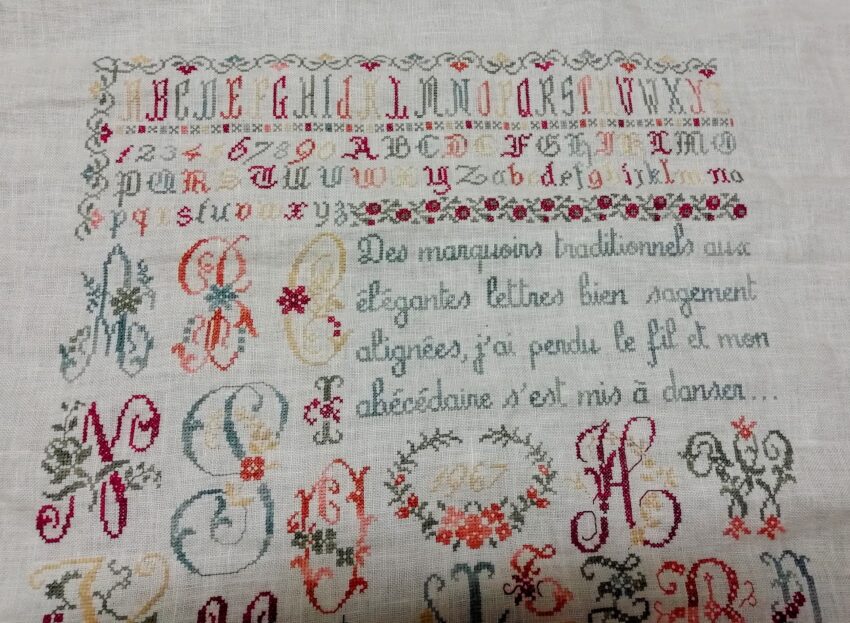 ABCDEFGHIJKLMNOPQRSTUVWXYZ
1234567890 ABCDEFGHIJKLMO
PQRSTUVWXYZabcdefghijklmno
pqrstuvwxyz
Des marquoirs traditionnels aux
élégantes lettres bien sagement
alignées, j'ai perdu le fil et mon
abécédaire s'est mis à danser...
A B C
N S I
O 1967 H W
I E R